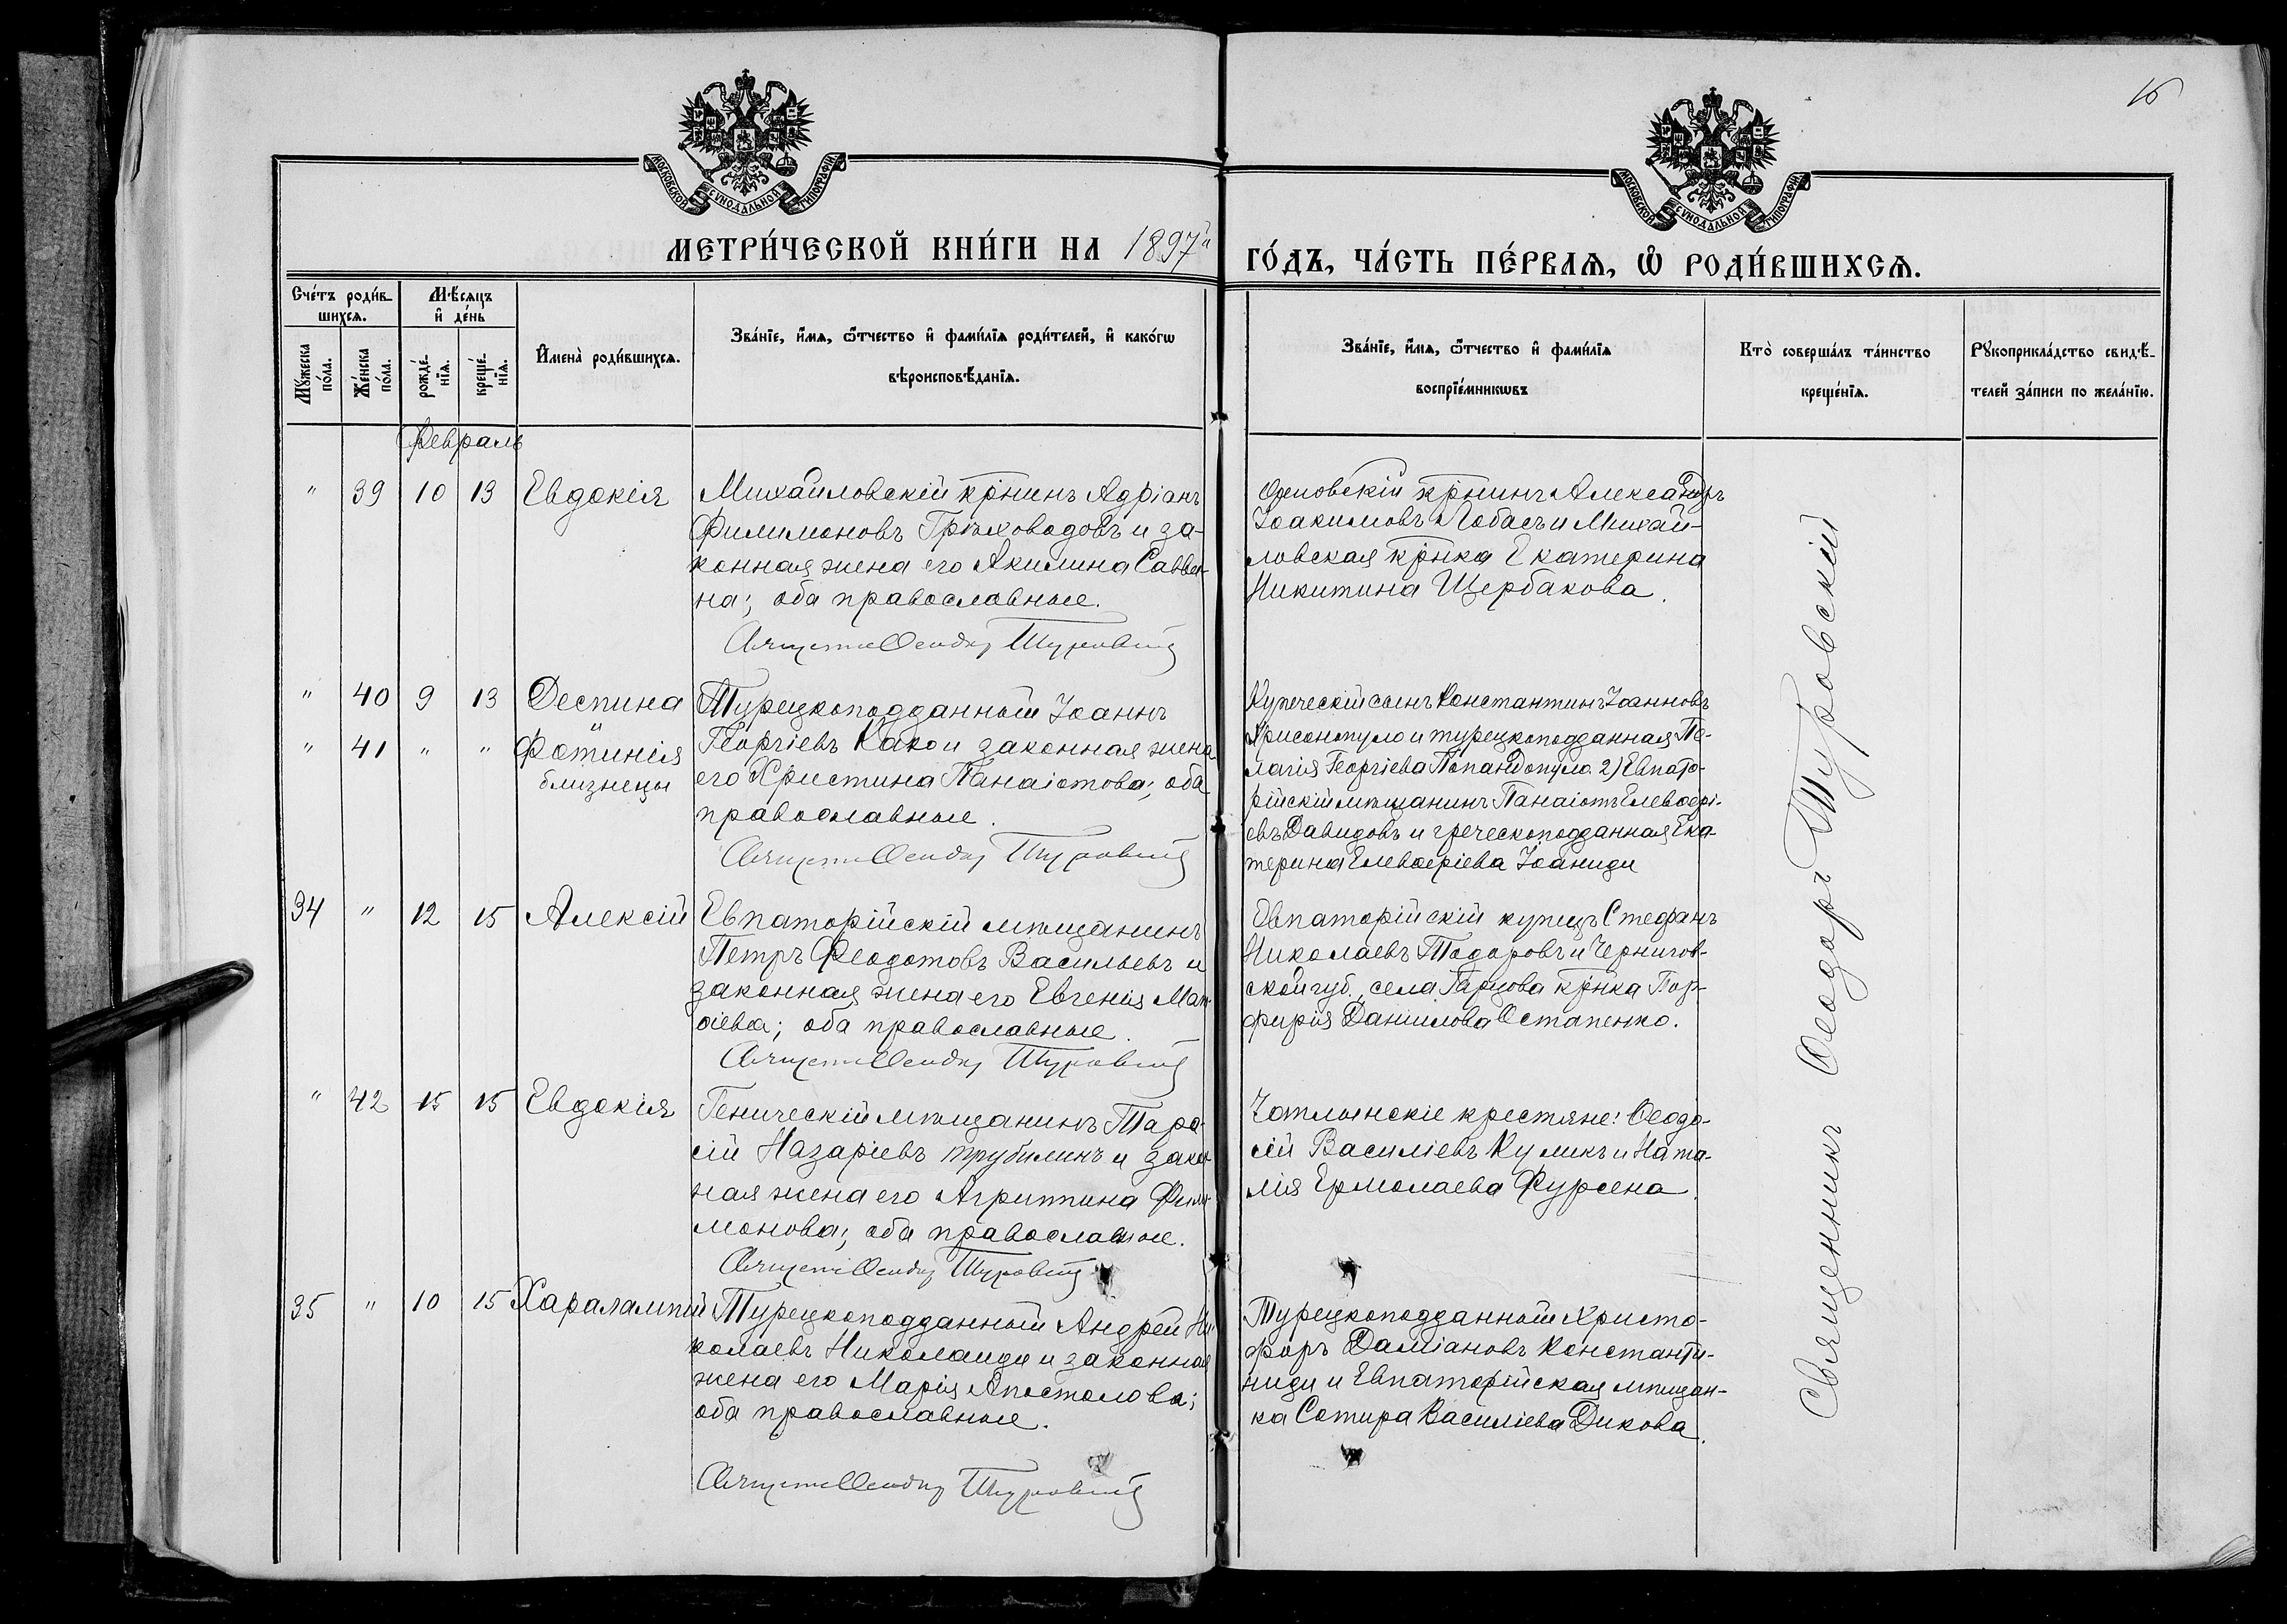 16
МОСКОВСКОЙ СѴНОДАЛЬНОЙ ТИПОГРАФІИ
МОСКОВСКОЙ СѴНОДАЛЬНОЙ ТИПОГРАФІИ
МЕТРИ́ЧЕСКОЙ КНИ́ГИ НА 1897й ГО́ДЪ, ЧА́СТЬ ПЕ́РВАѦ, Ѡ҆ РОДИ́ВШИХСѦ.
Сче́тъ роди́в-
шихсѧ.
Мꙋ́жеска
по́ла.
Же́нска
по́ла.
Мѣ́сѧцъ
и҆ де́нь
рожде́-
нїѧ.
креще́-
нїѧ.
И҆мена̀ роди́вшихсѧ.
Зва́нїе, и҆́мѧ, ѻ҆́тчество и҆ фами́лїѧ роди́телей, и҆ како́гѡ
вѣроисповѣ́данїѧ.
Зва́нїе, и҆́мѧ, ѻ҆́тчество и҆ фами́лїѧ
воспрїе́мникѡвъ
Кто̀ соверша́лъ та́инство
креще́нїѧ.
Рꙋкоприкла́дство свидѣ́-
телей за́писи по жела́нїю.
Февраль
" 39 10 13 Евдокія
Михайловскій кр̃нинъ Адріанъ
Филимоновъ Грѣховодовъ и за-
конная жена его Акилина Саввеи-
на; оба православные.
кр̃нинъ Александръ
Іоакимовъ Лобасъ и Михай-
ловская кр̃нка Екатерина
Никитина Щербакова.
" 40 9 13 Деспина
и
" 41 " " Фотинія
близнецы
Турецкоподданный Іоаннъ
Георгіевъ Како и законная жена
его Христина Панаіотова; оба
православные.
Купеческій сынъ Константинъ Іоанновъ
Хрисопуло и турецкоподданная Пе-
лагія Георгіева Попандопуло. 2) Евпато-
рійскій мѣщанинъ Панаіотъ Елевѳері-
евъ Давидовъ и греческоподданная Ека-
терина Елевѳеріева Іоаниди
34 " 12 15 Алексій
Евпаторійскій мѣщанинъ
Петръ Ѳеодотовъ Васильевъ и
законная жена его Евгенія Мат-
ѳіева; оба православные.
Евпаторійскій купецъ Стефанъ
Николаевъ Тодоровъ и Чернигов-
ской губ., села кр̃нка Пор-
фирія Даниилова Остапенко.
" 42 15 15 Евдокія
Геническій мѣщанинъ Тара-
сій Назаріевъ Трубилинъ и закон-
ная жена его Агриппина Фили-
монова; оба православные.
крестяне: Ѳеодо-
сій Василіевъ Куликъ и Ната-
лія Ермолаева Фурсена.
35 " 10 15 Харалампій
Турецкоподданный Андрей Ни-
колаевъ Николаиди и законная
жена его Марія Апостолова;
оба православные.
Турецкоподданный Христо-
форъ Даміановъ Константи-
ниди и Евпаторійская мѣщан-
ка Сотира Василіева Дикова.
Священникъ Ѳеодоръ Туровскій